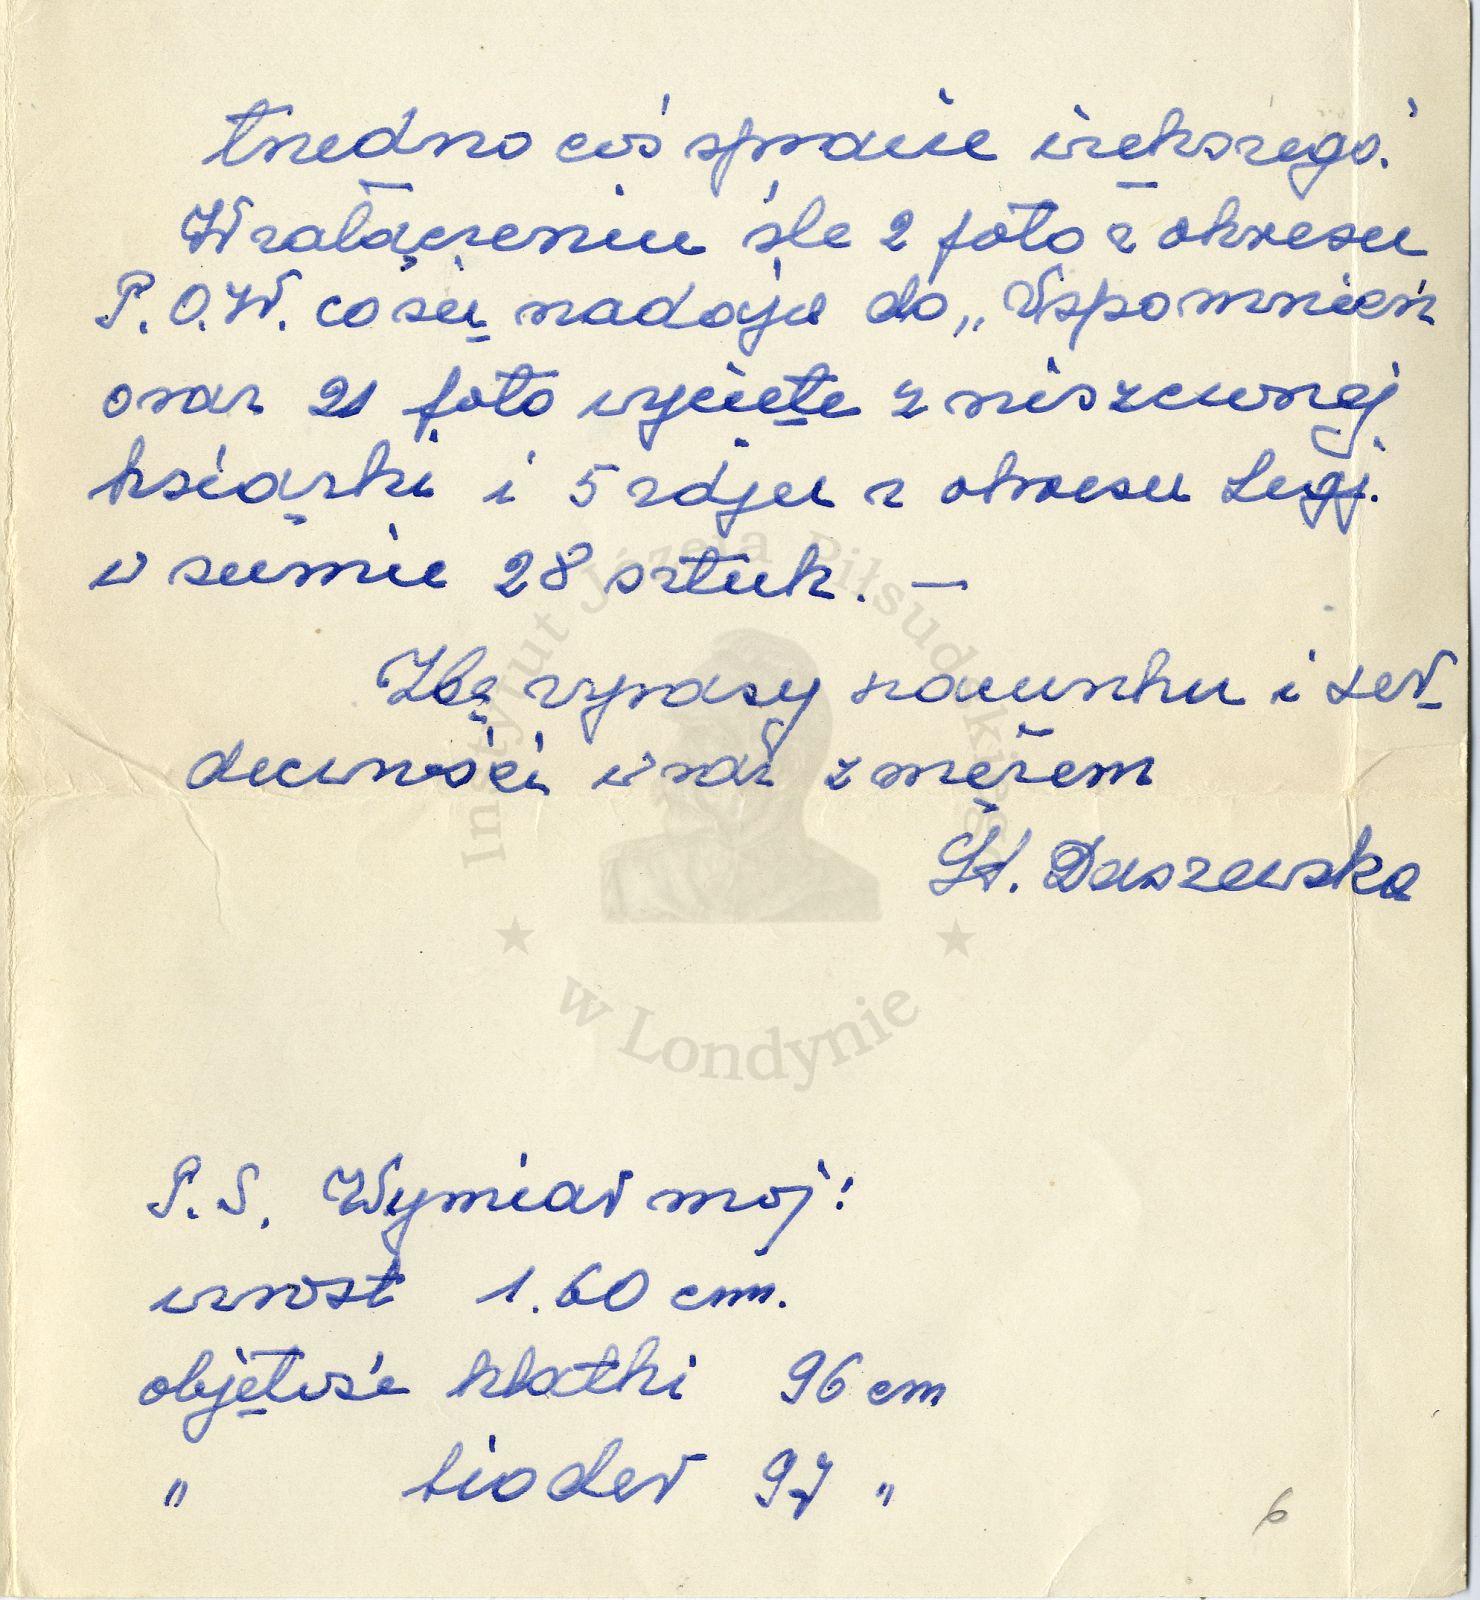 trudno coś spraw większego.
W załączeniu śle 2 foto z okresu
P.O.W. co się nadają do „Wspomnień
oraz 21 foto wycięte z niszczonej
książki i 5 zdjęć z okresu Legj.
w sumie 28 sztuk. —
Łączę wyrazy szacunku i ser-
deczności wraz z mężem
St. Daszewska
Instytut Józefa Piłsudskiego
w Londynie
P.S. Wymiar moj:
wzrost 1.60 cm.
objętość klatki 96 cm
" bioder 97 "
6